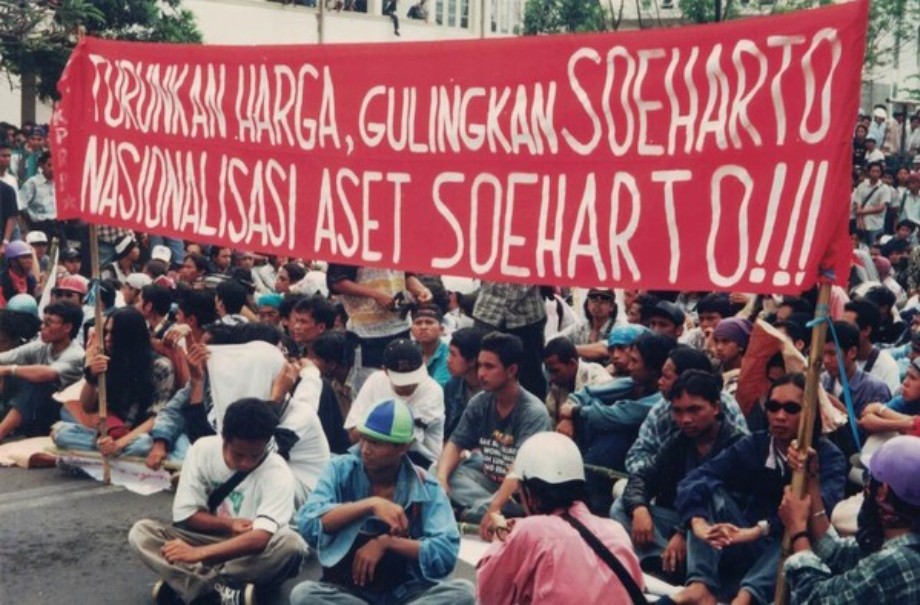 TURUNKAN HARGA, GULINGKAN SOEHARTO
NASIONALISASI ASET SOEHARTO!!!
KPRP